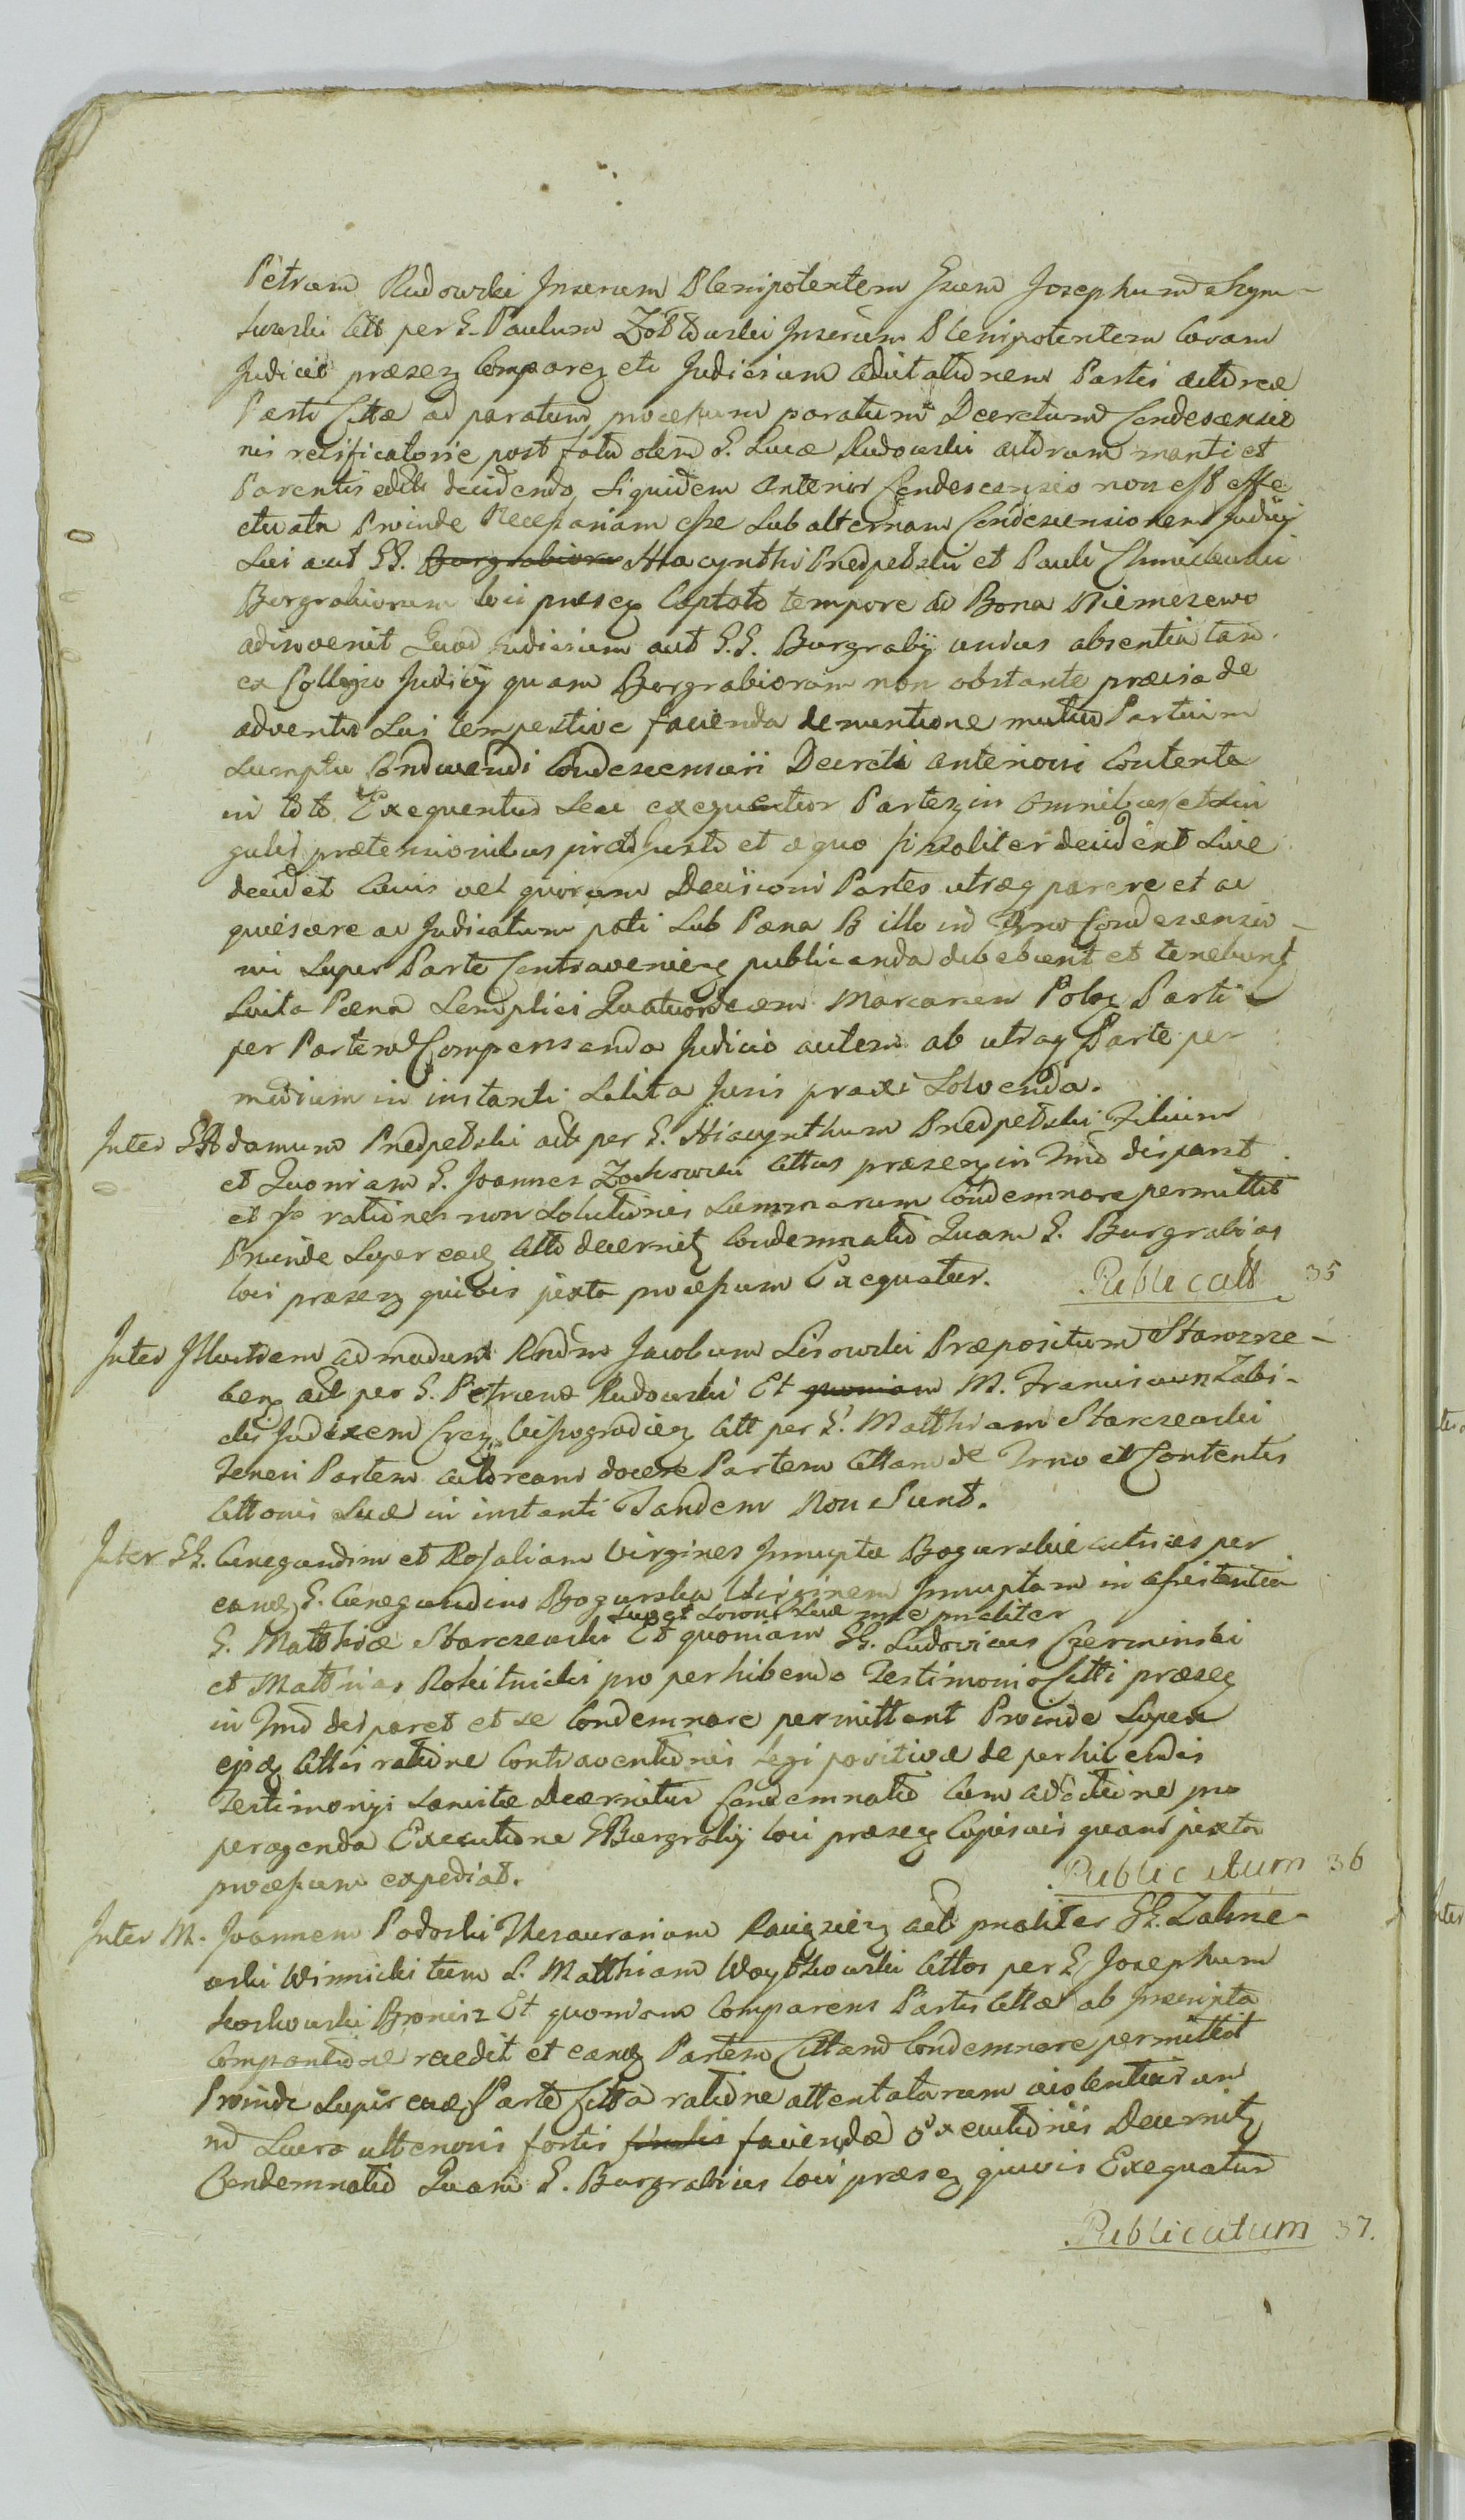 Petrum Rudowski Juxenem Plenipotentem Gsum Josephum Szym-
kowski Citt per G. Paulum Jnserum Plenipotentem Coram
Judicio præsez comparez ete Judicium Partis actoreæ
Parti Cittæ ad paratum processum paratum Decretum Condescensio
nis reificatorie post fata olim G. Lucæ Rudowski actorum
Parentis decidendo, Siquidem Anterior Condescensio non est effe
ctuata Proinde Necessariam esse Subalternam Condescensionem Judicij
Sui aut GG. Burgrabiorum Hiacynthi et Pauli
Burgrabiorum loci præsez Captato tempore ad Bona Niemszewo
adinvenit Quod Judicium aut G.G. Burgrabij unius absentia tam
ex Collegio Judicij quam Burgrabiorum non obstante prævia de
adventu Sui tempestive facienda denuntione mutuo Partium
Sumptu Condescensuri Decreti anterioris Contenta
in toto Exequentur Seu exequentior Partes in omnibus et Sin
gulis prætensionibus juxta Justo et æquo finaliter decident Sive
decidet Cuius vel quorum Decisioni Partes utræq parere et ac
quiescere ac Judicatum pati Sub Pœna B illo in Trno Condescensio-
nis Super Parte Contravenienz publicanda debebunt et tenebunt
Luita Pœna Semplici Quatuordecem Marcarum Polez Parti
per Partem Compensanda Judicio autem ab utraq Parte per
medium in instanti Salita Juris praxi Solvenda.
Inter G Adamum Predpełski act per G. Hiacynthum Predpełski Filium
et Quoniam G. Joannes Zochowski Cittus præsez in Tmo disparet
et se rationes non Solutionis Summarum Condemnare permittit
Proinde Super eoez Citto decernitz Condemnatio Quam G. Burgrabius
loci præsez quivis juxta processum Exequatur. Publicatt 35
Inter Illustrem admodum Rndum Jacobum Lisowski Præpositum Starorze-
benz act per G. Petrum Rudowski Et quoniam M. Franciscum Zabi-
cki Judicem Crez Wissogradiez Citt per G. Matthiam Starczewski
Teneri Partem actoream docere Partem Cittam de Trno et Contentis
Cittonis Suæ in instanti Tandem Non Sunt.
Inter GG. Cunegundim et Rosaliam Virgines Jnnuptæ Bogurskie actrices per
eanq G. Cunegundim Bogurska Virginem Jnnuptam in assistentia
Super Sorore Sue nae præliter
G. Matthiæ Starczewski Et quoniam GG. Ludovicus Czerminski
et Matthias Rokitnicki pro perhibendo Testimonio Citti præsez
in Tmo disparet et se Condemnare permittant Proinde Super
ejsq Cittis ratione Contraventionis Legi positivæ de perhibendis
Testimonijs Sancitæ Decernitur Condemnatio Cum adictione pro
peragenda Executione GBurgrabij loci præsez Cujusvis quam juxta
processum expediat. Publicatum 36
Inter M. Joannem Podoski Thesaurarium act præliter GG. Zakrze-
wski Winnicki tum G. Matthiam Woytkowski Cittos per G. Josephum
Kossowski Et quoniam Comparens Partis Cittæ ab Jnscripta
Comparitione recedit et eanq Partem Cittam Condemnare permittit
Proinde Super eaez Parte Citta ratione attentatarum violentiarum
nc Lucro ulterioris fortis finalis faciendæ Executionis Decernitz
Condemnatio Quam G. Burgrabius loci præsez quivis Exequatur
Publicatum 37.